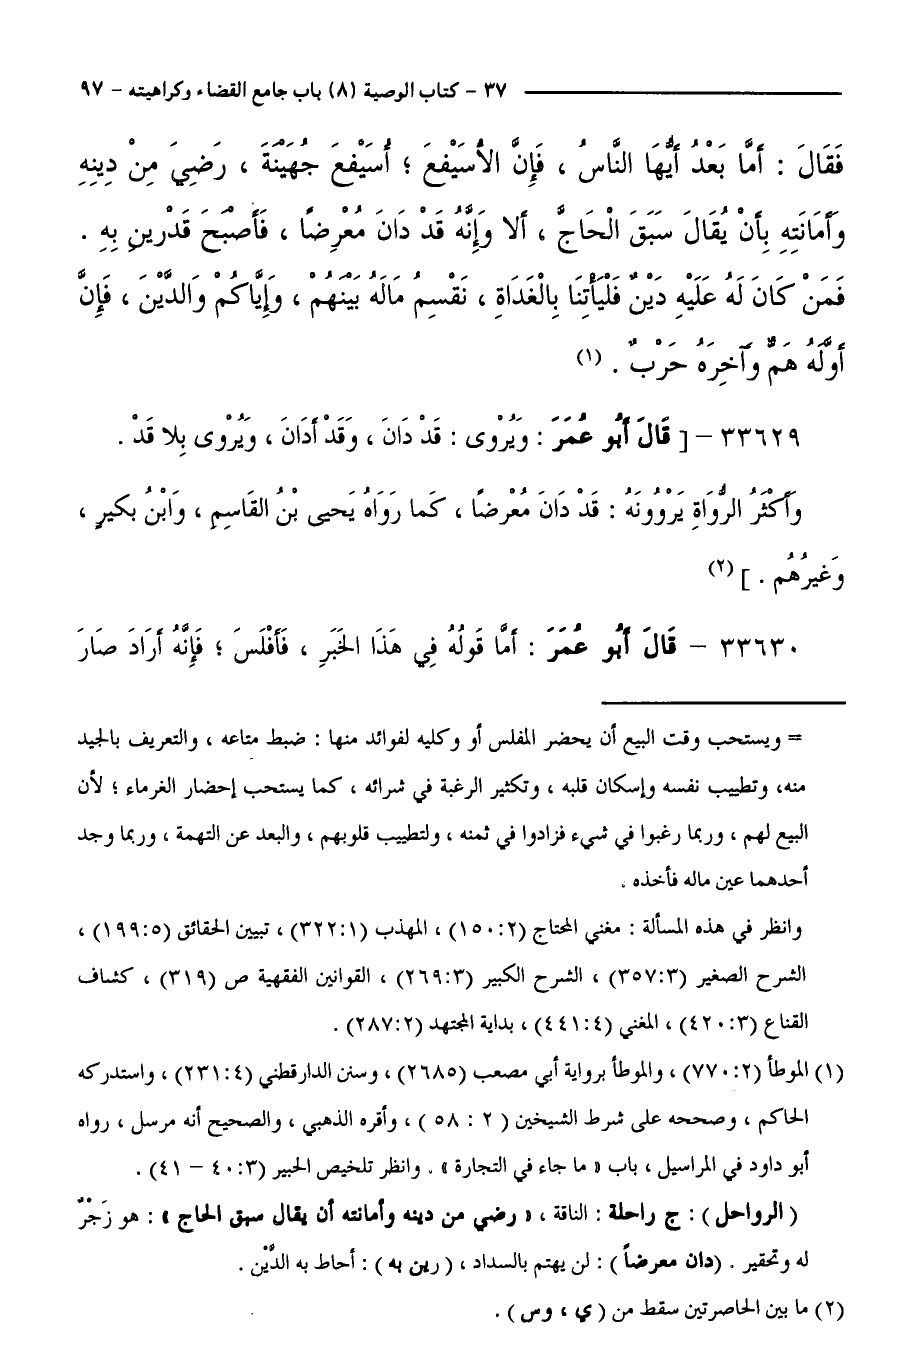 ٣٧ - كتاب الوصية (٨) باب جامع القضاء وكراهيته - ٩٧
فَقَالَ : أَمَّا بَعْدُ أَيُّهَا النَّاسُ ، فَإِنَّ الأُسَيْفِعَ ؛ أُسَيْفِعَ جُهَيْنَةَ ، رَضِيَ مِنْ دِينِهِ
وَأَمَانَتِهِ بِأَنْ يُقَالَ سَبَقَ الْحَاجَّ ، أَلا وَإِنَّهُ قَدْ دَانَ مُعْرِضًا ، فَأَصْبَحَ قَدْرِينِ بِهِ .
فَمَنْ كَانَ لَهُ عَلَيْهِ دَيْنٌ فَلْيَأْتِنَا بِالْغَدَاةِ ، نَقْسِمُ مَالَهُ بَيْنَهُمْ ، وَإِيَّاكُمْ وَالدَّيْنَ ، فَإِنَّ
أَوَّلَهُ هَمٌّ وَآخِرَهُ حَرْبٌ . (١)
٣٣٦٢٩ - [ قَالَ أَبُو عُمَرَ : وَيُرْوى : قَدْ دَانَ ، وَقَدْ أَدَانَ ، وَيُرْوى بِلا قَدْ .
وَأَكْثَرُ الرُّوَاةِ يَرْوُونَهُ : قَدْ دَانَ مُعْرْضًا ، كَما رَوَاهُ يَحيى بْنُ القَاسِمِ ، وَابْنُ بكيرٍ ،
وَغيرُهُم . ] (٢)
٣٣٦٣٠ - قَالَ أَبُو عُمَرَ : أَمَّا قَولُهُ فِي هَذَا الخَبَرِ ، فَأَفْلَسَ ؛ فَإِنَّهُ أَرَادَ صَارَ
= ويستحب وقت البيع أن يحضر المفلس أو وكليه لفوائد منها : ضبط متاعه ، والتعريف بالجيد
منه، وتطييب نفسه وإسكان قلبه ، وتكثير الرغبة في شرائه ، كما يستحب إحضار الغرماء ؛ لأن
البيع لهم ، وربما رغبوا في شيء فزادوا في ثمنه ، ولتطييب قلوبهم ، والبعد عن التهمة ، وربما وجد
أحدهما عين ماله فأخذه .
وانظر في هذه المسألة : مغني المحتاج (٢:١٥٠) ، المهذب (١:٣٢٢) ، تبيين الحقائق (٥:١٩٩) ،
الشرح الصغير (٣:٣٥٧) ، الشرح الكبير (٣:٢٦٩) ، القوانين الفقهية ص (٣١٩) ، كشاف
القناع (٣:٤٢٠) ، المغني (٤:٤٤١) ، بداية المجتهد (٢:٢٨٧) .
(١) الموطأ (٢:٧٧٠) ، والموطأ برواية أبي مصعب (٢٦٨٥) ، وسنن الدارقطني (٤:٢٣١) ، واستدركه
الحاكم ، وصححه على شرط الشيخين ( ٢ : ٥٨ ) ، وأقره الذهبي ، والصحيح أنه مرسل ، رواه
أبو داود في المراسيل ، باب « ما جاء في التجارة » . وانظر تلخيص الحبير (٣:٤٠ - ٤١) .
( الرواحل ) : ج راحلة : الناقة ، « رضي من دينه وأمانته أن يقال سبق الحاج » : هو زَجْرٌ
له وتحقير . (دان معرضاً ) : لن يهتم بالسداد ، ( رين به ) : أحاط به الدَّيْن .
(٢) ما بين الحاصرتين سقط من ( ي ، وس ) .